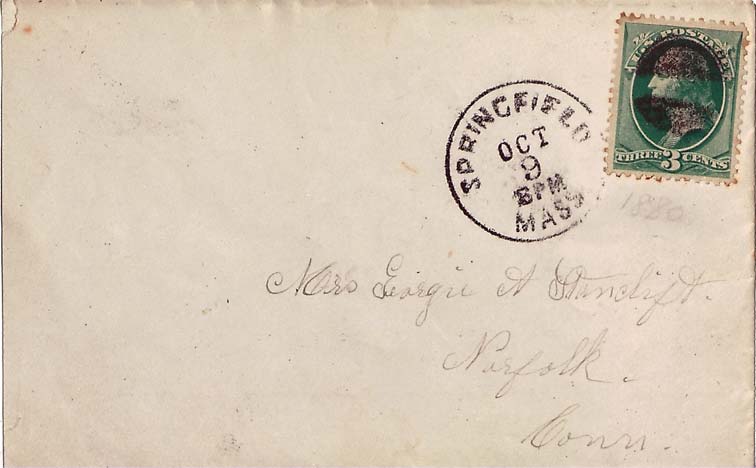 U.S. POSTAGE
THREE 3 CENTS
SPRINGFIELD
OCT
9
6PM
MASS
1880
Mrs Georgie A Stanclift.
Norfolk.
Conn.